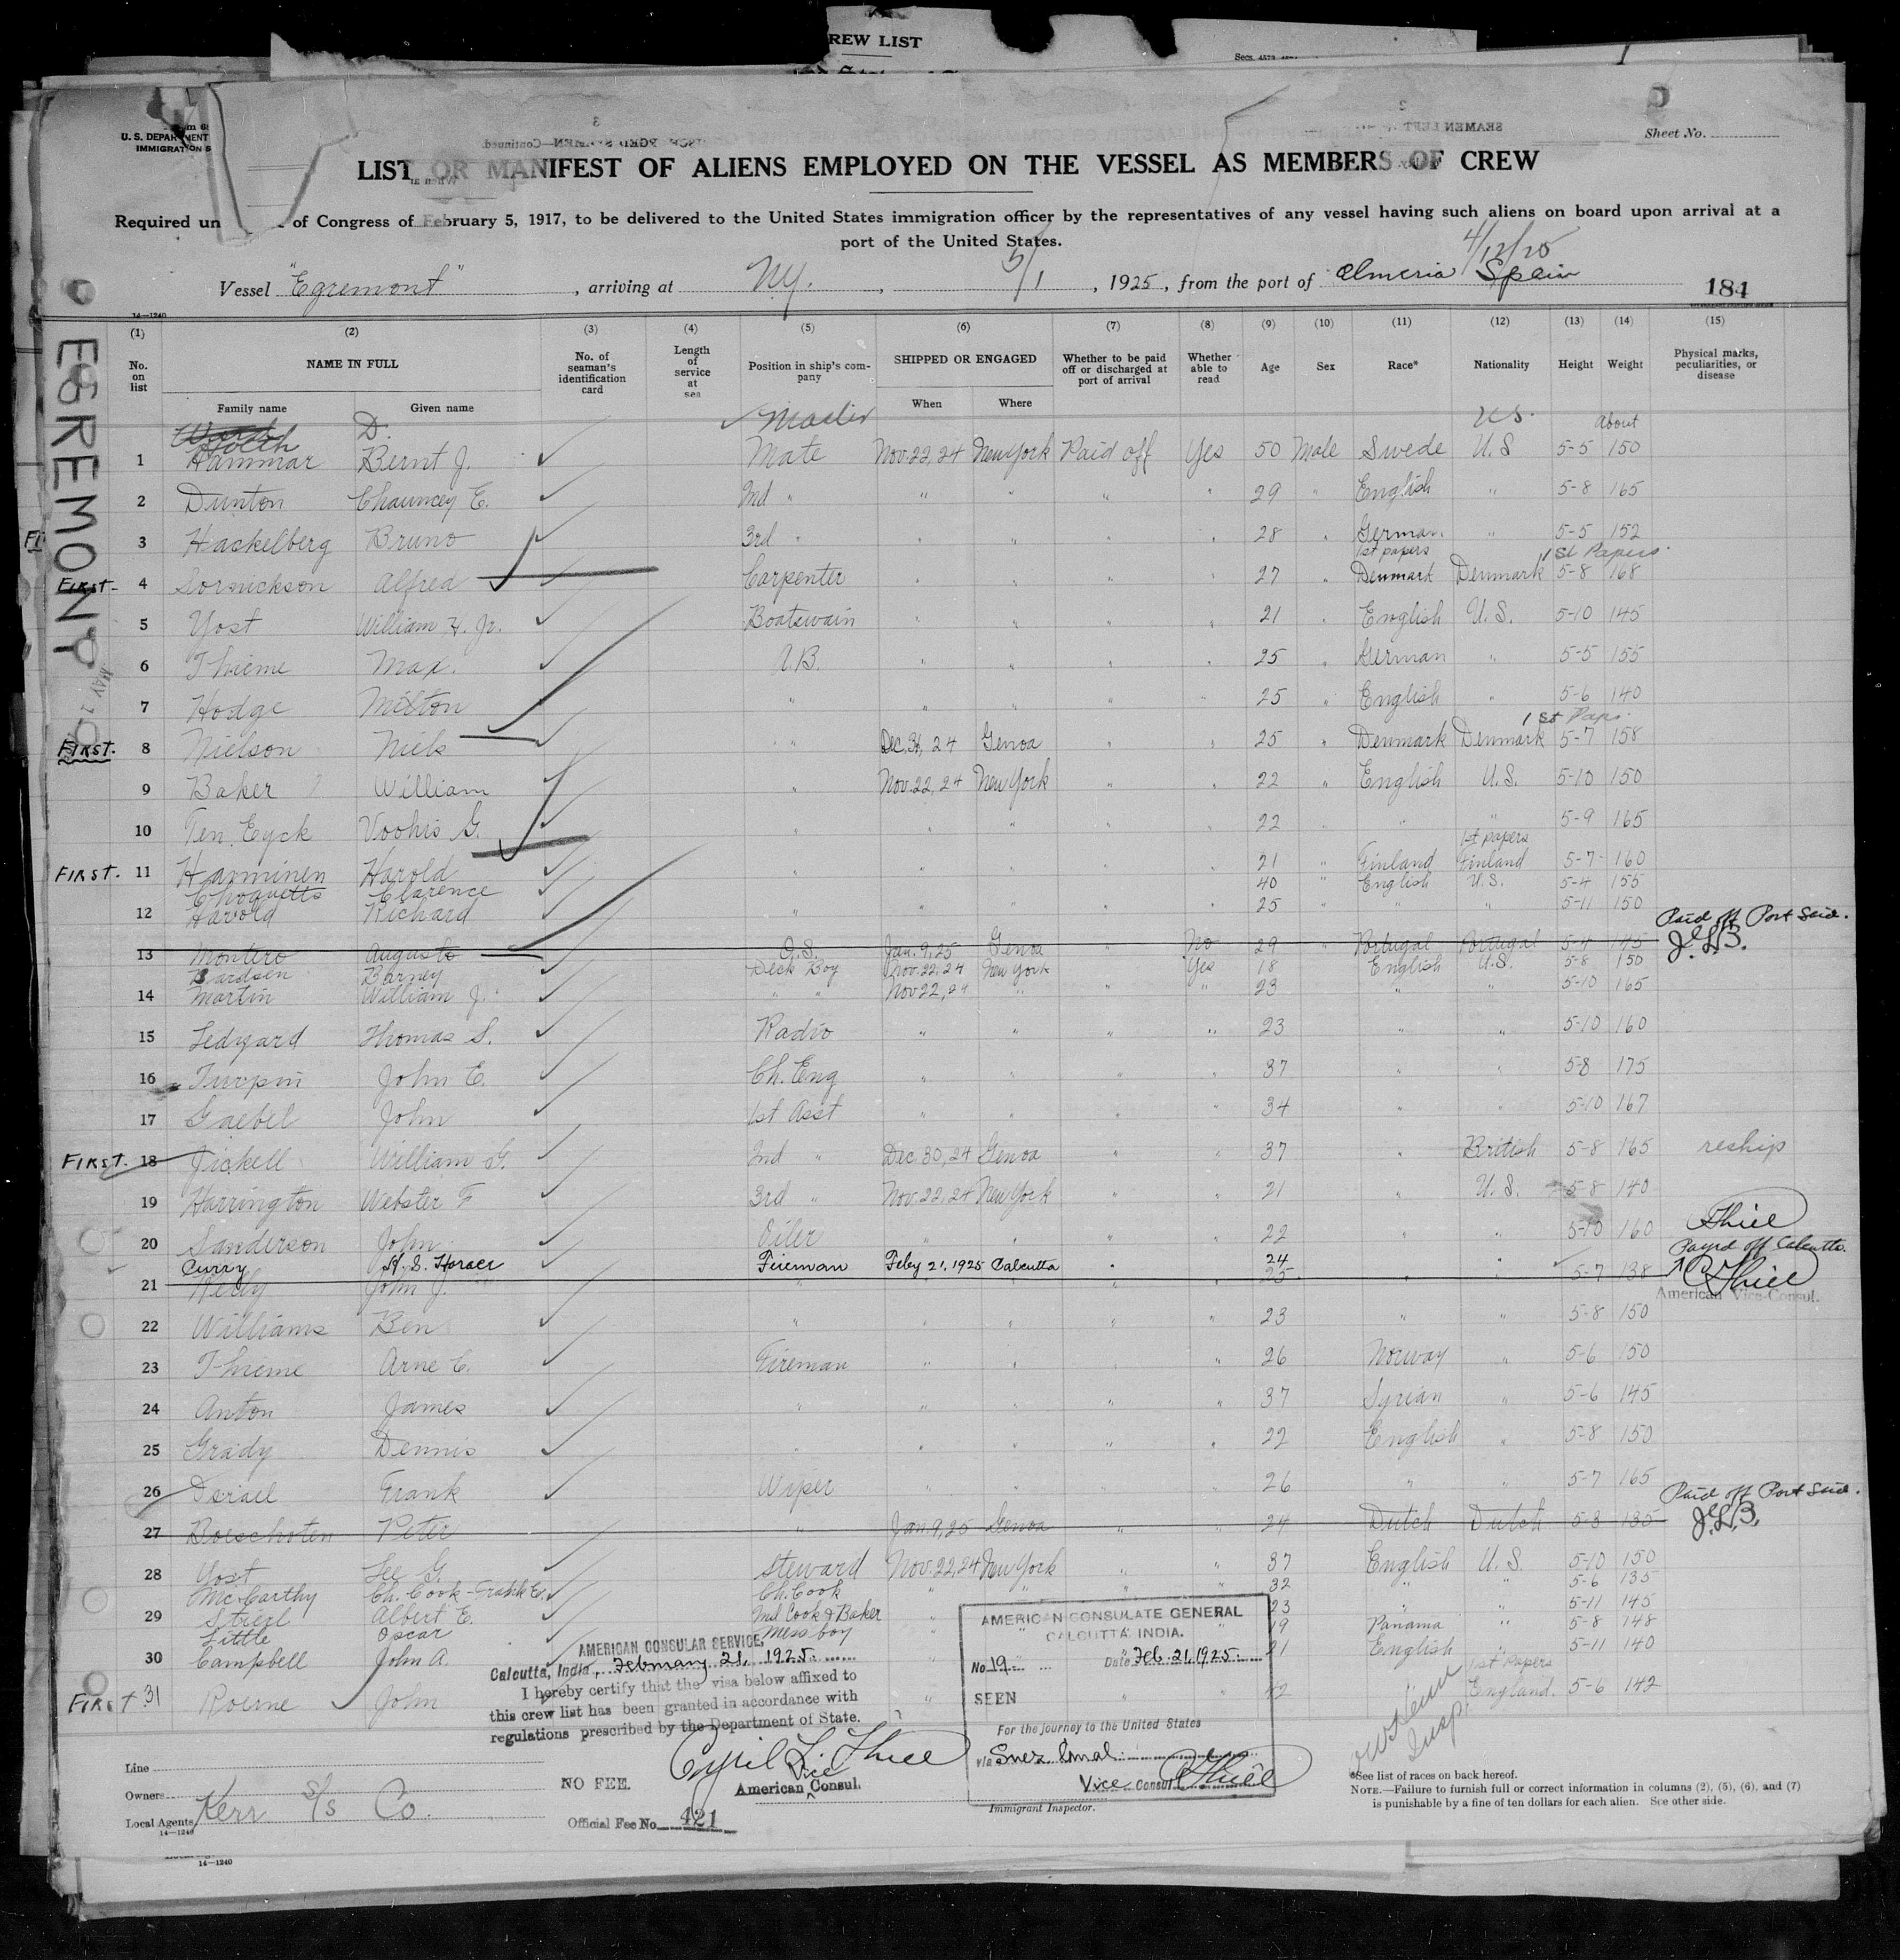 REW LIST
U. S. DEPARTMENT
IMMIGRATION S
SEAMEN LEFT
Sheet No.
LIST OR MANIFEST OF ALIENS EMPLOYED ON THE VESSEL AS MEMBERS OF CREW
Required un of Congress of February 5, 1917, to be delivered to the United States immigration officer by the representatives of any vessel having such aliens on board upon arrival at a
port of the United States.
4/12/25
Vessel "Egremont", arriving at N.Y., 5/1, 1925, from the port of Almeria Spain
184
14—1240
EGREMONT
(1) (2) (3) (4) (5) (6) (7) (8) (9) (10) (11) (12) (13) (14) (15)
No. on list NAME IN FULL No. of seaman's identification card Length of service at sea Position in ship's company SHIPPED OR ENGAGED Whether to be paid off or discharged at port of arrival Whether able to read Age Sex Race* Nationality Height Weight Physical marks, peculiarities, or disease
Family name Given name When Where
D. Master U.S. About
1 Hammar Bernt J. Mate Nov. 22, 24 New York Paid off Yes 50 Male Swede U.S 5-5 150
2 Dunton Chauncey E. 2nd " " " " " 29 " English " 5-8 165
3 Hackelberg Bruno 3rd " " " " " 28 " German " 5-5 152
1st papers 1st Papers
First 4 Sornickson Alfred Carpenter " " " " 27 " Denmark Denmark 5-8 168
5 Yost William H. Jr. Boatswain " " " " 21 " English U.S. 5-10 145
6 Thieme Max. A.B. " " " " 25 " German " 5-5 155
7 Hodge Milton " " " " " 25 " English " 5-6 140
1st Paps.
First. 8 Nielson Niels " " Dec. 31, 24 Genoa " " 25 " Denmark Denmark 5-7 158
9 Baker William " Nov. 22, 24 New York " " 22 " English U.S. 5-10 150
10 Ten Eyck Voohis G. " " " " " 22 " " " 5-9 165
1st papers
First. 11 Harminen Harold " " " " " 21 " Finland Finland 5-7 160
Choquette Clarence 40 " English U.S. 5-4 155
12 Harold Richard " " " " " 25 " " " 5-11 150
Paid off Port Said.
13 Montero Augusto O.S. Jan. 9, 25 Genoa " No 29 " Portugal Portugal 5-4 145 J.L.B.
Bardsen Barney Deck Boy Nov. 22, 24 New York Yes 18 English U.S. 5-8 150
14 Martin William J. " " Nov 22, 24 " " " 23 " " 5-10 165
15 Ledyard Thomas S. Radio " " " " 23 " " 5-10 160
16 Turpin John E. Ch. Eng " " " " 37 " " 5-8 175
17 Gaebel John 1st Asst " " " " 34 " " 5-10 167
First. 18 Jickell William G. 2nd " Dec. 30, 24 Genoa " " 37 " British 5-8 165 reship
19 Harrington Webster F 3rd " Nov. 22, 24 New York " " 21 " U.S. 5-8 140
20 Sanderson John Oiler " " " " 22 " " 5-10 160 Thiel
Curry H. S. Horace Fireman Feby 21, 1925 Calcutta " 24 Payed off Calcutta.
21 Kelly John J. " " " " " 25 " " 5-7 138 Thiel
American Vice-Consul.
22 Williams Ben " " " " 23 " " 5-8 150
23 Thieme Arne C. Fireman " " " 26 Norway " 5-6 150
24 Anton James " " " " " 37 Syrian " 5-6 145
25 Grady Dennis " " " " " 22 English " 5-8 150
26 Israel Frank Wiper " " " " 26 " " 5-7 165
Paid off Port Said.
27 Boeschoten Peter " Jan 9, 25 Genoa " " 24 Dutch Dutch 5-3 135 J.L.B.
28 Yost Lee G. Steward Nov. 22, 24 New York " " 37 English U.S. 5-10 150
McCarthy Ch. Cook - Frank E. Ch. Cook " " " " 32 " " 5-6 135
29 Striegl Albert E. 2nd Cook & Baker " 23 " " 5-11 145
Little Oscar Messboy " " " 19 Panama " 5-8 148
30 Campbell John A. " 21 English " 5-11 140
1st Papers
First 31 Rourne John " " " 42 England. 5-6 142
AMERICAN CONSULAR SERVICE,
Calcutta, India, February 21, 1925.
I hereby certify that the visa below affixed to
this crew list has been granted in accordance with
regulations prescribed by the Department of State.
Cyril L. Thiel
Vice
American Consul.
NO FEE.
Official Fee No. 421
AMERICAN CONSULATE GENERAL
CALCUTTA, INDIA.
No 19 Date Feb. 21, 1925.
SEEN
For the journey to the United States
via Suez Canal.
Vice Consul Thiel
Immigrant Inspector.
Insp.
Line
Owners
Local Agents Kerr S/S Co.
14—1240
*See list of races on back hereof.
NOTE.—Failure to furnish full or correct information in columns (2), (5), (6), and (7)
is punishable by a fine of ten dollars for each alien. See other side.
14—1240